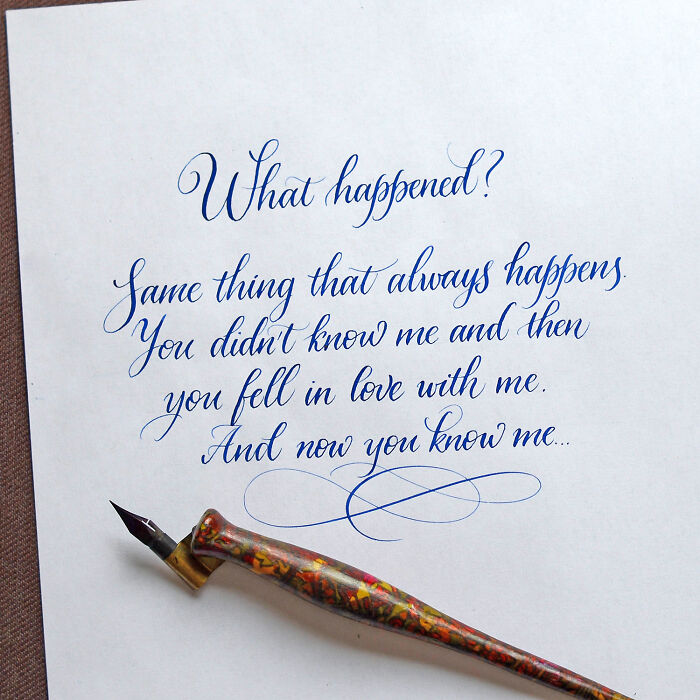 What happened?
Same thing that always happens.
You didn't know me and then
you fell in love with me.
And now you know me...